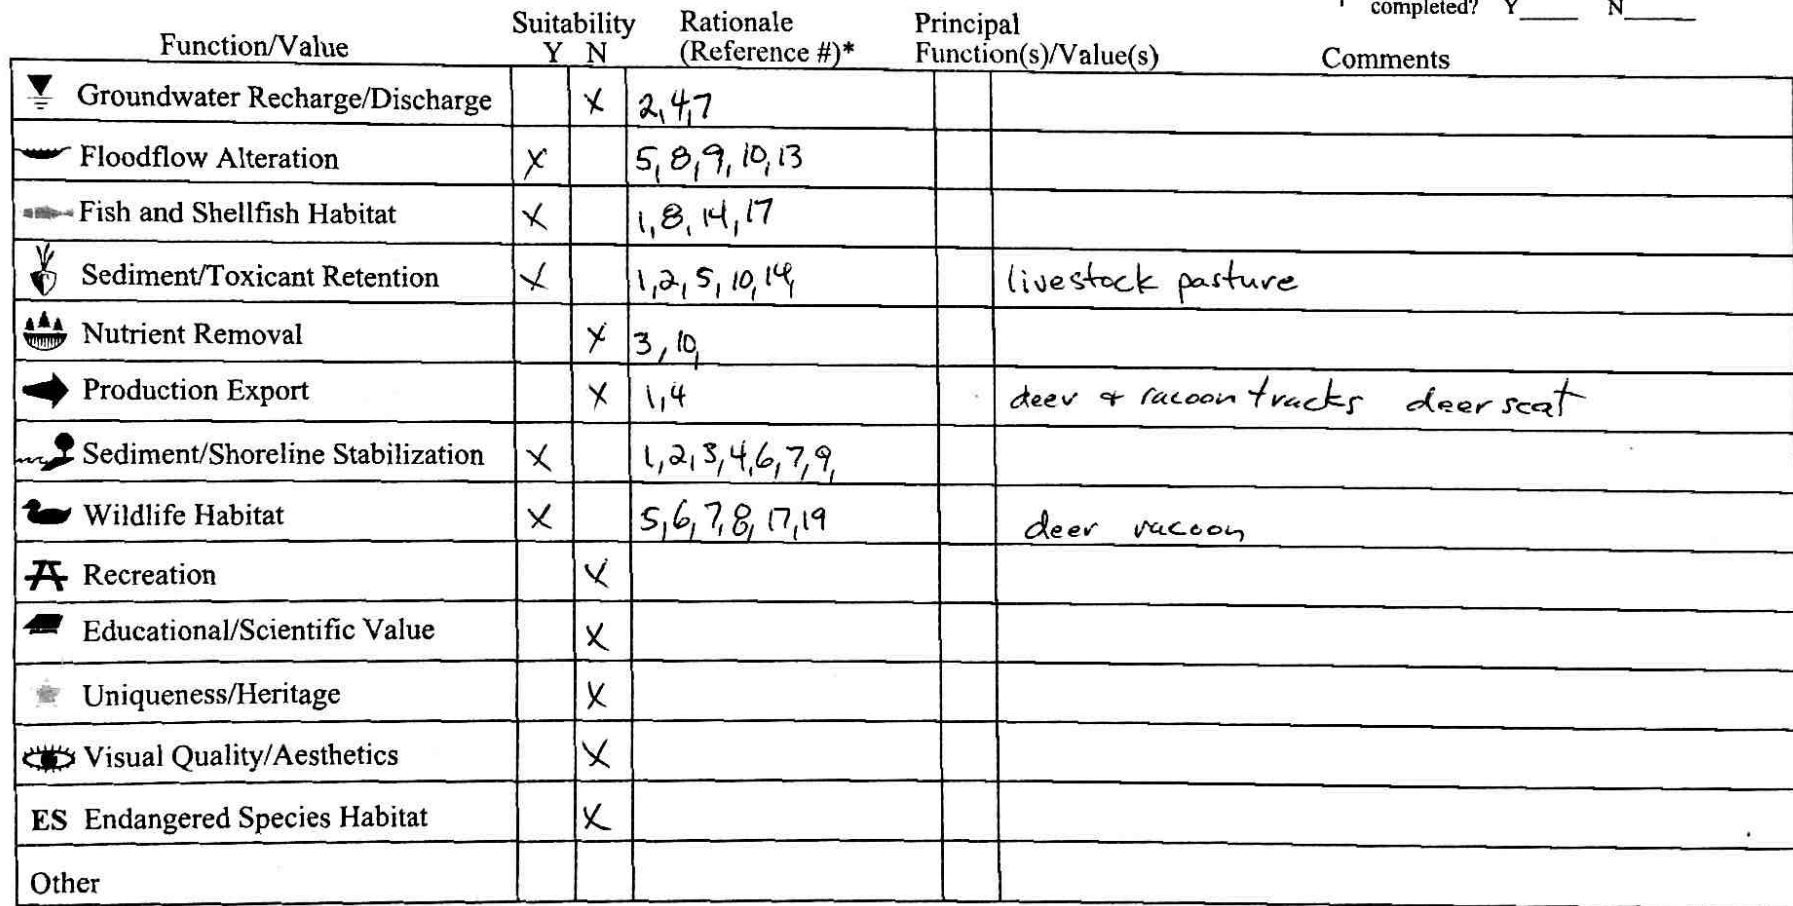 completed? Y_____ N_____
Suitability Rationale Principal
Function/Value Y N (Reference #)* Function(s)/Value(s) Comments
Groundwater Recharge/Discharge X 2,4,7
Floodflow Alteration X 5,8,9,10,13
Fish and Shellfish Habitat X 1,8,14,17
Sediment/Toxicant Retention X 1,2,5,10,14, livestock pasture
Nutrient Removal X 3,10,
Production Export X 1,4 deer & racoon tracks deer scat
Sediment/Shoreline Stabilization X 1,2,3,4,6,7,9,
Wildlife Habitat X 5,6,7,8,17,19 deer racoon
Recreation X
Educational/Scientific Value X
Uniqueness/Heritage X
Visual Quality/Aesthetics X
ES Endangered Species Habitat X
Other